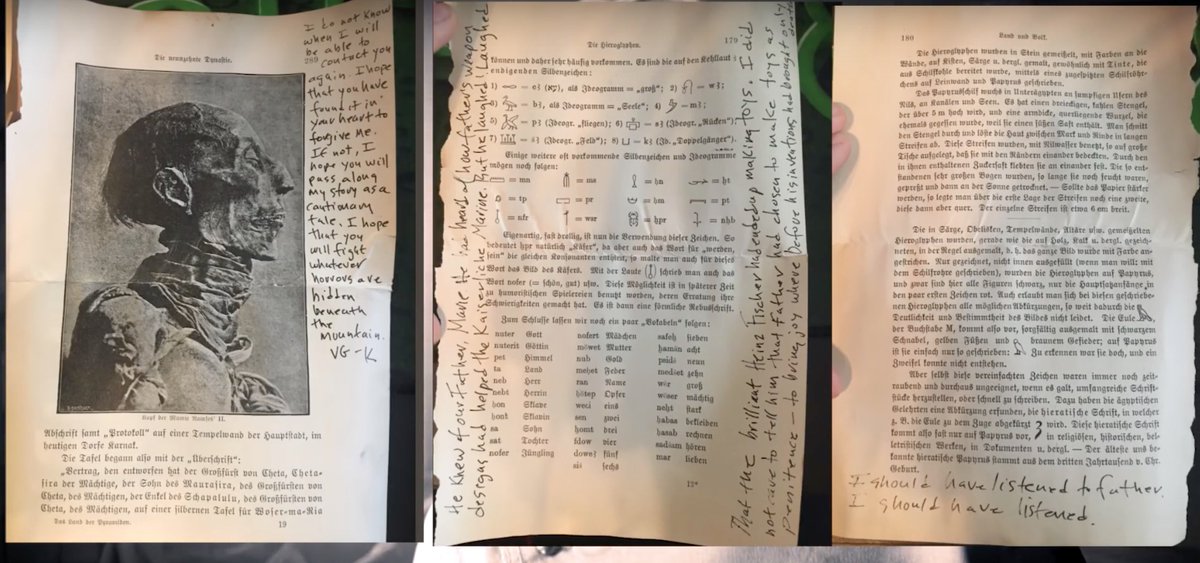 Die neunzehnte Dynastie.
289
I do not know
when I will
be able to
contact you
again. I hope
that you have
found it in
your heart to
forgive me.
If not, I
hope you will
pass along
my story as a
cautionary
tale. I hope
that you
will fight
whatever
horrors are
hidden
beneath
the
mountain.
VG-K
Kopf der Mumie Ramses' II.
Abschrift samt „Protokoll“ auf einer Tempelwand der Hauptstadt, im
heutigen Dorfe Karnak.
Die Tafel begann also mit der „Überschrift“:
„Vertrag, den entworfen hat der Großfürst von Cheta, Cheta-
sira der Mächtige, der Sohn des Maurasira, des Großfürsten von
Cheta, des Mächtigen, der Enkel des Schapalulu, des Großfürsten von
Cheta, des Mächtigen, auf einer silbernen Tafel für Woser-ma-Ria
Das Land der Pyramiden.
19
Die Hieroglyphen.
179
können und daher sehr häufig vorkommen. Es sind die auf den Kehllaut
endigenden Silbenzeichen:
als Ideogramm = „groß“; 2) = w3;
= b3, als Ideogramm = „Seele“; 4) = m3;
5) = p3 (Ideogr. „fliegen“); 6) = s3 (Ideogr. „Rücken“);
7) = (Ideogr. „Feld“); 8) = k3 (Id. „Doppelgänger“).
Einige weitere oft vorkommende Silbenzeichen und Ideogramme
mögen noch folgen:
= mn = ms = hn = ht
= tp = pr = hm = pt
= nfr = war = hpr = nhb
Eigenartig, fast drollig, ist nun die Verwendung dieser Zeichen. So
bedeutet hpr natürlich „Käfer“, da aber auch das Wort für „werden,
sein“ die gleichen Konsonanten enthielt, so malte man auch für dieses
Wort das Bild des Käfers. Mit der Laute schrieb man auch das
Wort nofer (= schön, gut) usw. Diese Möglichkeit ist in späterer Zeit
zu humoristischen Spielereien benutzt worden, deren Erratung ihre
Schwierigkeiten gemacht hat. Es ist dann eine förmliche Rebusschrift.
Zum Schlusse lassen wir noch ein paar „Vokabeln“ folgen:
nuter Gott
nuterit Göttin
pet Himmel
ta Land
neb Herr
nebt Herrin
hon Sklave
hont Sklavin
sa Sohn
sat Tochter
nofer Jüngling
nofert Mädchen
mowet Mutter
nub Gold
mehet Feder
ran Name
hotep Opfer
weci eins
sen zwei
homt drei
fdow vier
dowe3 fünf
sis sechs
safeh sieben
haman acht
psids neun
medset zehn
wer groß
woser mächtig
neht stark
habas bekleiden
hasab rechnen
sadsam hören
mar lieben
12*
He knew of our father, Marie. He had heard of how father's weapon
designs had helped the Kaiserliche Marine. But he laughed! Laughed
That the brilliant Heinz Fischer had ended up making toys. I did
not care to tell him that father had chosen to make toys as
penitence — to bring joy where before his inventions had brought only
death
180
Land und Volk.
Die Hieroglyphen wurden in Stein gemeißelt, mit Farben an die
Wände, auf Kisten, Särge u. dergl. gemalt, gewöhnlich mit Tinte, die
aus Schilfkohle bereitet wurde, mittels eines zugespitzten Schilfröhr-
chens auf Leinwand und Papyrus geschrieben.
Das Papyrusschilf wuchs in Unterägypten an sumpfigen Ufern des
Nils, an Kanälen und Seen. Es hat einen dreieckigen, kahlen Stengel,
der über 5 m hoch wird, und eine armdicke, querliegende Wurzel, die
ehemals gegessen wurde, weil sie einen süßen Saft enthält. Man schnitt
den Stengel durch und löste die Haut zwischen Mark und Rinde in langen
Streifen ab. Diese Streifen wurden, mit Nilwasser benetzt, so auf große
Tische aufgelegt, daß sie mit den Rändern einander bedeckten. Durch den
in ihnen enthaltenen Zuckersaft klebten sie an einander fest. Die so ent-
standenen sehr großen Bogen wurden, so lange sie noch feucht waren,
gepreßt und dann an der Sonne getrocknet. — Sollte das Papier stärker
werden, so legte man über die erste Lage der Streifen noch eine zweite,
diese dann aber quer. Der einzelne Streifen ist etwa 6 cm breit.
Die in Särge, Obelisken, Tempelwände, Altäre usw. gemeißelten
Hieroglyphen wurden, gerade wie die auf Holz, Kalk u. dergl. gezeich-
neten, in der Regel ausgemalt, d. h. das ganze Bild wurde mit Farbe an-
gestrichen. Nur gezeichnet, nicht innen ausgefüllt (wenn man will: mit
dem Schilfrohre geschrieben), wurden die Hieroglyphen auf Papyrus,
und zwar sind hier alle Figuren schwarz, nur die Hauptsatzanfänge in
den paar ersten Zeichen rot. Auch erlaubt man sich bei diesen geschriebe-
nen Hieroglyphen alle möglichen Abkürzungen, so weit dadurch die
Deutlichkeit und Bestimmtheit des Bildes nicht leidet. Die Eule
der Buchstabe M, kommt also vor, sorgfältig ausgemalt mit schwarzem
Schnabel, gelben Füßen und braunem Gefieder; auf Papyrus
ist sie einfach nur so geschrieben: Zu erkennen war sie doch, und ein
Zweifel konnte nicht entstehen.
Aber selbst diese vereinfachten Zeichen waren immer noch zeit-
raubend und durchaus ungeeignet, wenn es galt, umfangreiche Schrift-
stücke herzustellen, oder schnell zu schreiben. Dazu haben die ägyptischen
Gelehrten eine Abkürzung erfunden, die hieratische Schrift, in welcher
z. B. die Eule zu dem Zuge abgekürzt wird. Diese hieratische Schrift
kommt also fast nur auf Papyrus vor, in religiösen, historischen, bel-
letristischen Werken, in Dokumenten u. dergl. — Der älteste uns be-
kannte hieratische Papyrus stammt aus dem dritten Jahrtausend v. Chr.
Geburt.
I should have listened to father.
I should have listened.